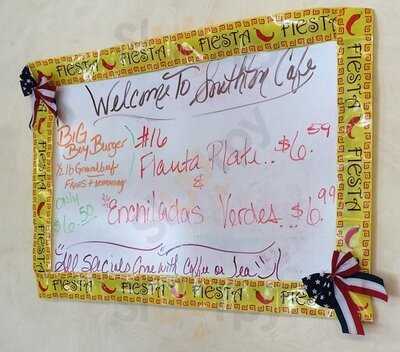 FIESTA FIESTA FIESTA FIESTA
Welcome To Southton Cafe
BiG
Boy Burger
½ lb Ground beef
Fries +
only
$6.50
#16
Flauta Plate.. $6.59
&
"Enchiladas Verdes.. $6.99
"All Specials Come with Coffee or Tea"
FIESTA
FIESTA
FIESTA
FIESTA
FIESTA FIESTA FIESTA FIESTA